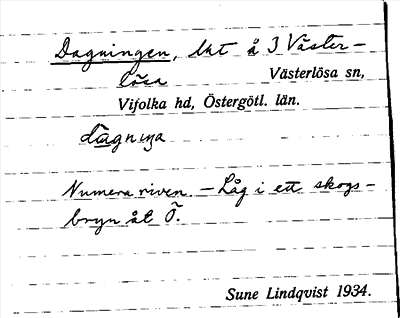 Dagningen, lht å 3 Väster-
lösa Västerlösa sn,
Vifolka hd, Östergötl. län.
Numera riven. – Låg i ett skogs-
bryn åt Ö.
Sune Lindqvist 1934.